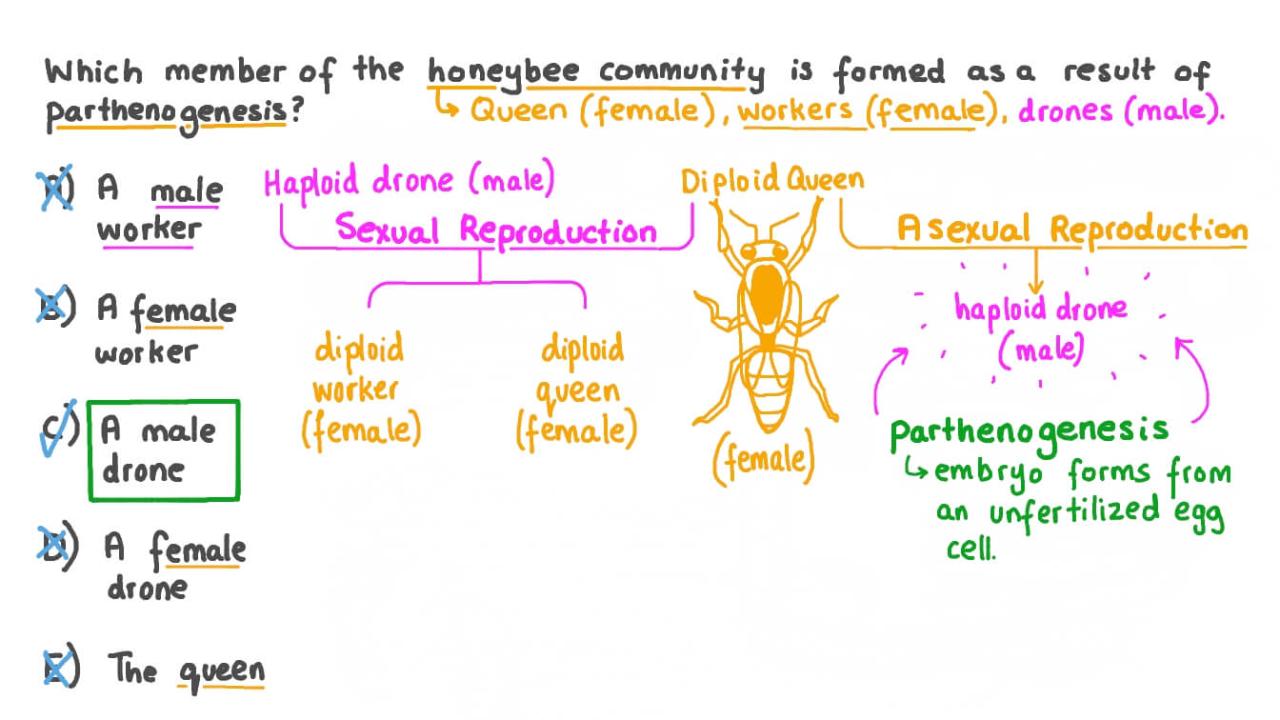 Which member of the honeybee community is formed as a result of
parthenogenesis?
↳ Queen (female), workers (female), drones (male).
A) A male
worker
B) A female
worker
C) A male
drone
D) A female
drone
E) The queen
Haploid drone (male)
Diploid Queen
Sexual Reproduction
Asexual Reproduction
diploid
worker
(female)
diploid
queen
(female)
(female)
haploid drone
(male)
Parthenogenesis
↳ embryo forms from
an unfertilized egg
cell.